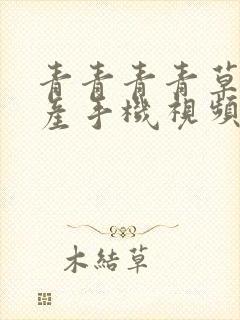 青青青青草
產手機視頻
木結草